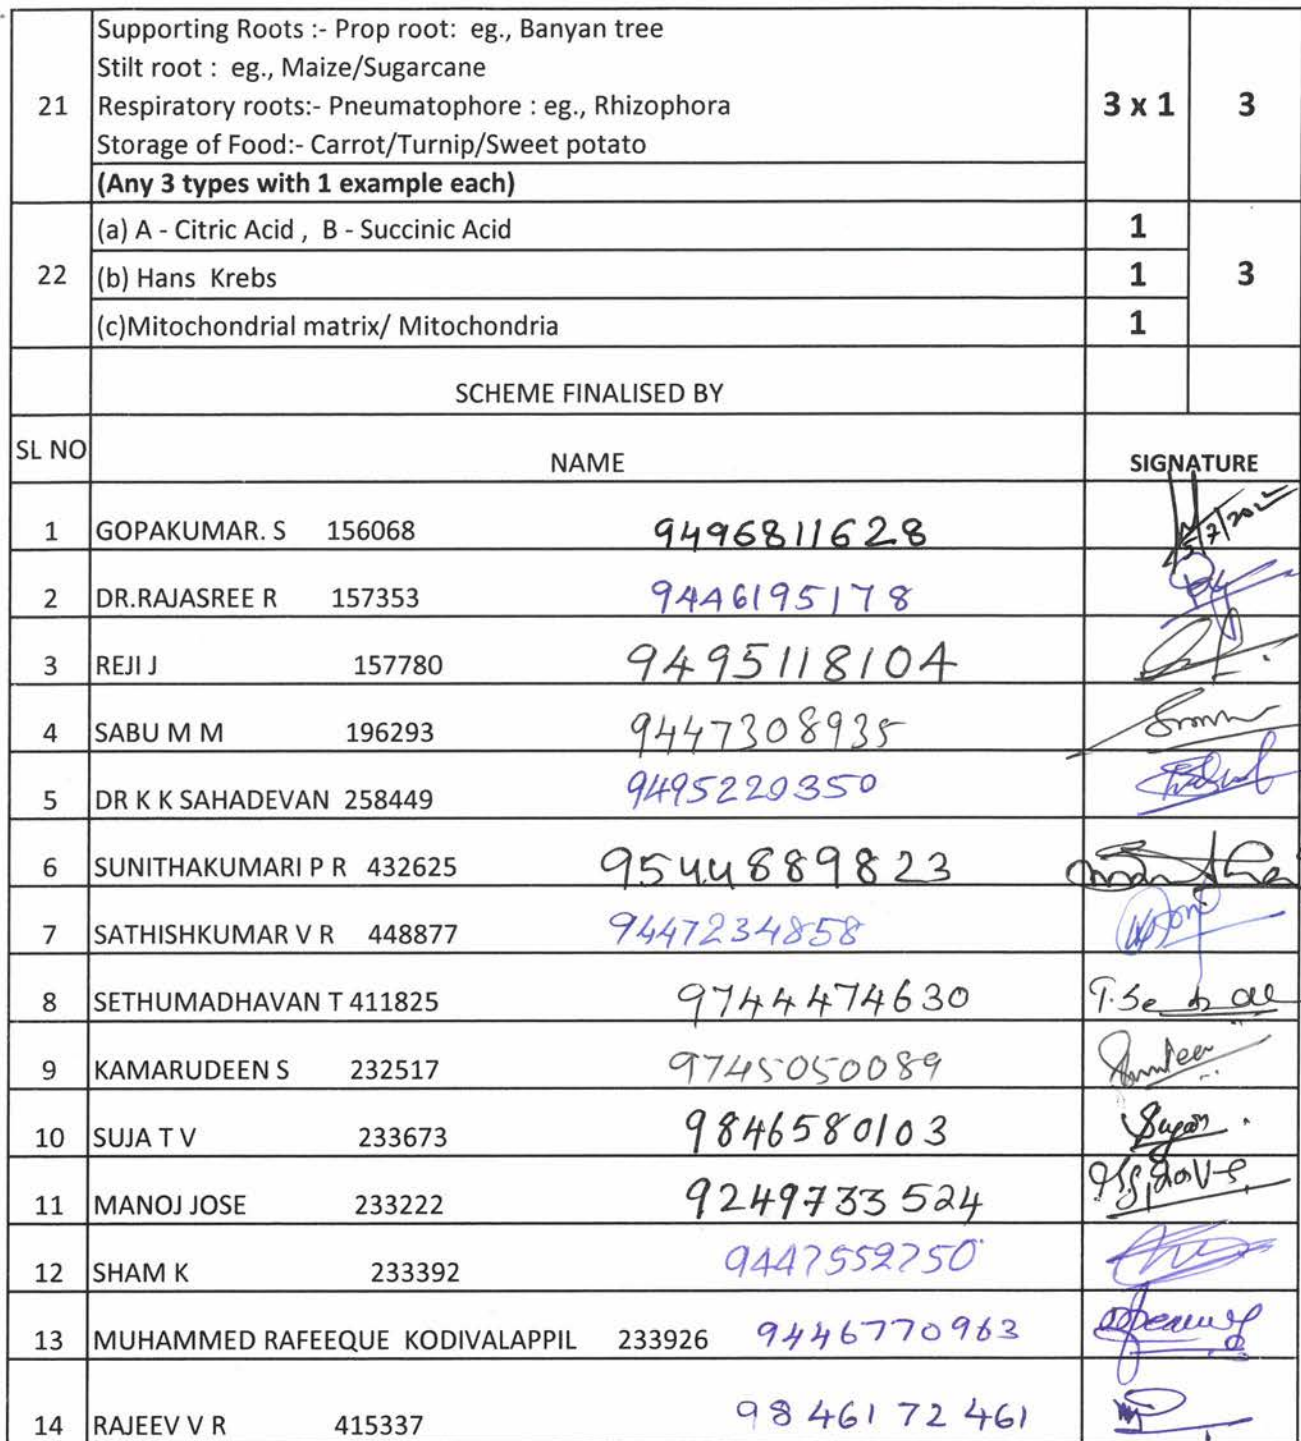 21
Supporting Roots :- Prop root: eg., Banyan tree
Stilt root : eg., Maize/Sugarcane
Respiratory roots:- Pneumatophore : eg., Rhizophora
Storage of Food:- Carrot/Turnip/Sweet potato
(Any 3 types with 1 example each)
3 x 1 3
22
(a) A - Citric Acid , B - Succinic Acid 1
(b) Hans Krebs 1 3
(c)Mitochondrial matrix/ Mitochondria 1
SCHEME FINALISED BY
SL NO NAME SIGNATURE
1 GOPAKUMAR. S 156068 9496811628
2 DR.RAJASREE R 157353 9446195178
3 REJI J 157780 9495118104
4 SABU M M 196293 9447308935
5 DR K K SAHADEVAN 258449 9495220350
6 SUNITHAKUMARI P R 432625 9544889823
7 SATHISHKUMAR V R 448877 9447234858
8 SETHUMADHAVAN T 411825 9744474630
9 KAMARUDEEN S 232517 9745050089
10 SUJA T V 233673 9846580103
11 MANOJ JOSE 233222 9249733524
12 SHAM K 233392 9447552750
13 MUHAMMED RAFEEQUE KODIVALAPPIL 233926 9446770963
14 RAJEEV V R 415337 9846172461